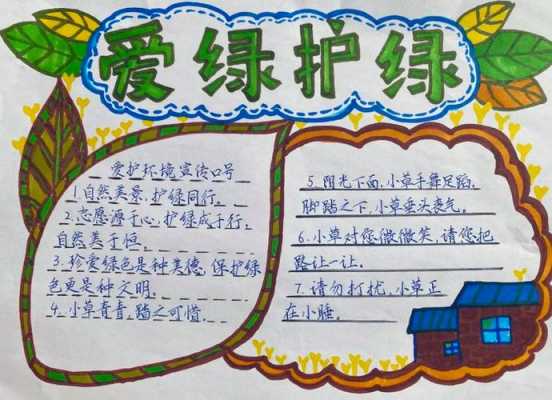 爱绿护绿
爱护环境宣传口号
1.自然美景,护绿同行。
2.志愿源于心,护绿成于行,
自然美于恒。
3.珍爱绿色是种美德,保护绿
色更是种文明。
4.小草青青,踏之可惜.
5.阳光下面,小草手舞足蹈,
脚踏之下,小草垂头丧气。
6.小草对您微微笑,请您把
路让一让。
7.请勿打扰,小草正
在小睡。